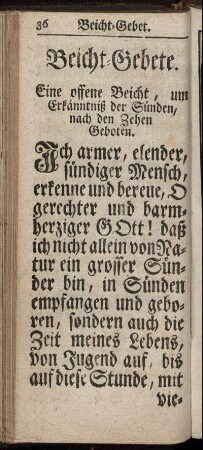 36 Beicht-Gebet.
Beicht-Gebete.
Eine offene Beicht, um
Erkänntniß der Sünden,
nach den Zehen
Geboten.
Ich armer, elender,
sündiger Mensch,
erkenne und bereue, O
gerechter und barm-
herziger GOtt! daß
ich nicht allein von Na-
tur ein grosser Sün-
der bin, in Sünden
empfangen und gebo-
ren, sondern auch die
Zeit meines Lebens,
von Jugend auf, bis
auf diese Stunde, mit
vie-